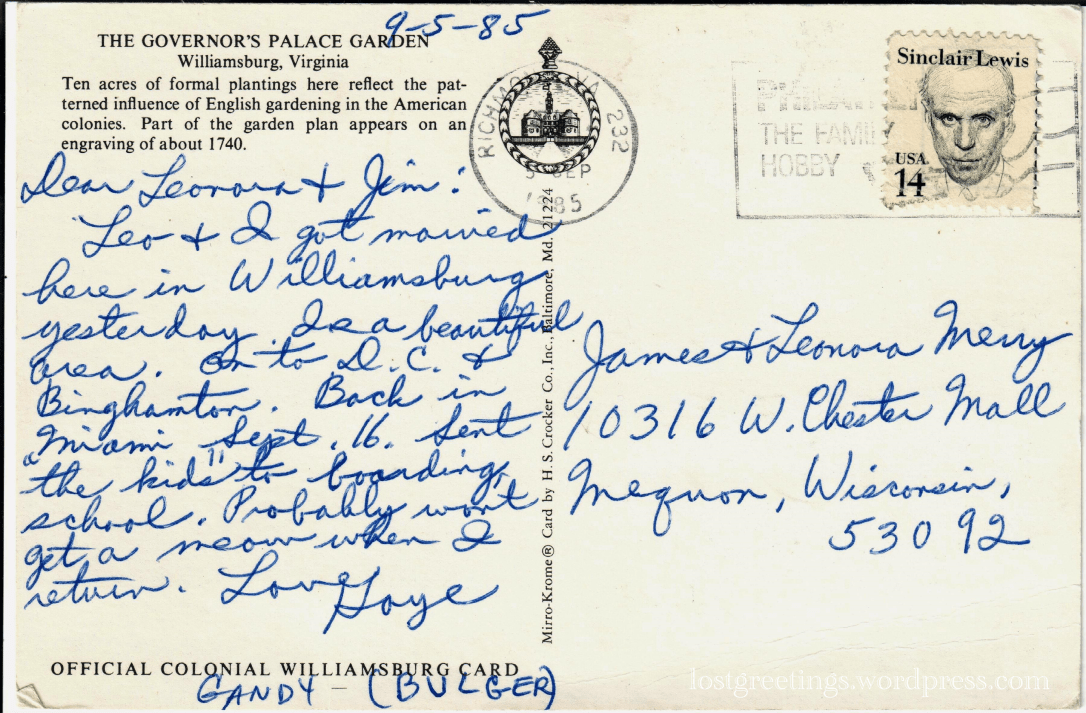 9-5-85
THE GOVERNOR'S PALACE GARDEN
Williamsburg, Virginia
Ten acres of formal plantings here reflect the pat-
terned influence of English gardening in the American
colonies. Part of the garden plan appears on an
engraving of about 1740.
Dear Leonora + Jim:
Leo + I got married
here in Williamsburg
yesterday. Is a beautiful
area. On to D.C. &
Binghamton. Back in
Miami Sept. 16. Sent
"the kids" to boarding
school. Probably won't
get a meow when I
return. Love
Gaye
OFFICIAL COLONIAL WILLIAMSBURG CARD
GANDY - (BULGER)
Mirro-Krome® Card by H. S. Crocker Co., Inc., Baltimore, Md. 21224
RICHMOND VA 232
5 SEP
1985
THE FAMI
HOBBY
Sinclair Lewis
USA
14
James & Leonora Merry
10316 W. Chester Mall
Mequon, Wisconsin,
53092
lostgreetings.wordpress.com